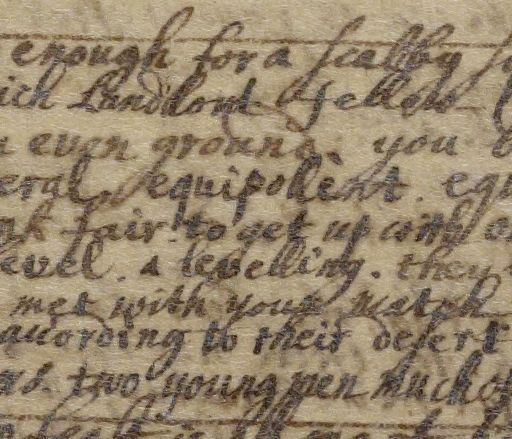 enough for a scabby s
ich Landlord fellow
n even ground. you
eral, equipollent. equ
nk fair. to get up with
evel. a levelling. they
met with your match
according to their desert
two young men much of